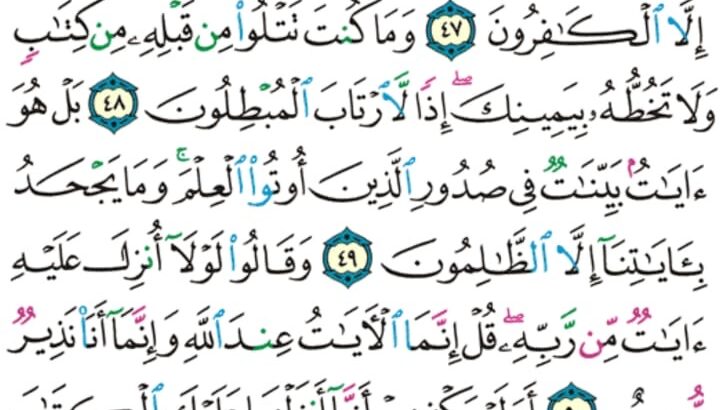 إِلَّا ٱلْكَـٰفِرُونَ ٤٧ وَمَا كُنتَ تَتْلُوا۟ مِن قَبْلِهِۦ مِن كِتَـٰبٍ
وَلَا تَخُطُّهُۥ بِيَمِينِكَ ۖ إِذًا لَّٱرْتَابَ ٱلْمُبْطِلُونَ ٤٨ بَلْ هُوَ
ءَايَـٰتٌۢ بَيِّنَـٰتٌ فِى صُدُورِ ٱلَّذِينَ أُوتُوا۟ ٱلْعِلْمَ ۚ وَمَا يَجْحَدُ
بِـَٔايَـٰتِنَآ إِلَّا ٱلظَّـٰلِمُونَ ٤٩ وَقَالُوا۟ لَوْلَآ أُنزِلَ عَلَيْهِ
ءَايَـٰتٌ مِّن رَّبِّهِۦ ۖ قُلْ إِنَّمَا ٱلْـَٔايَـٰتُ عِندَ ٱللَّهِ وَإِنَّمَآ أَنَا۠ نَذِيرٌ